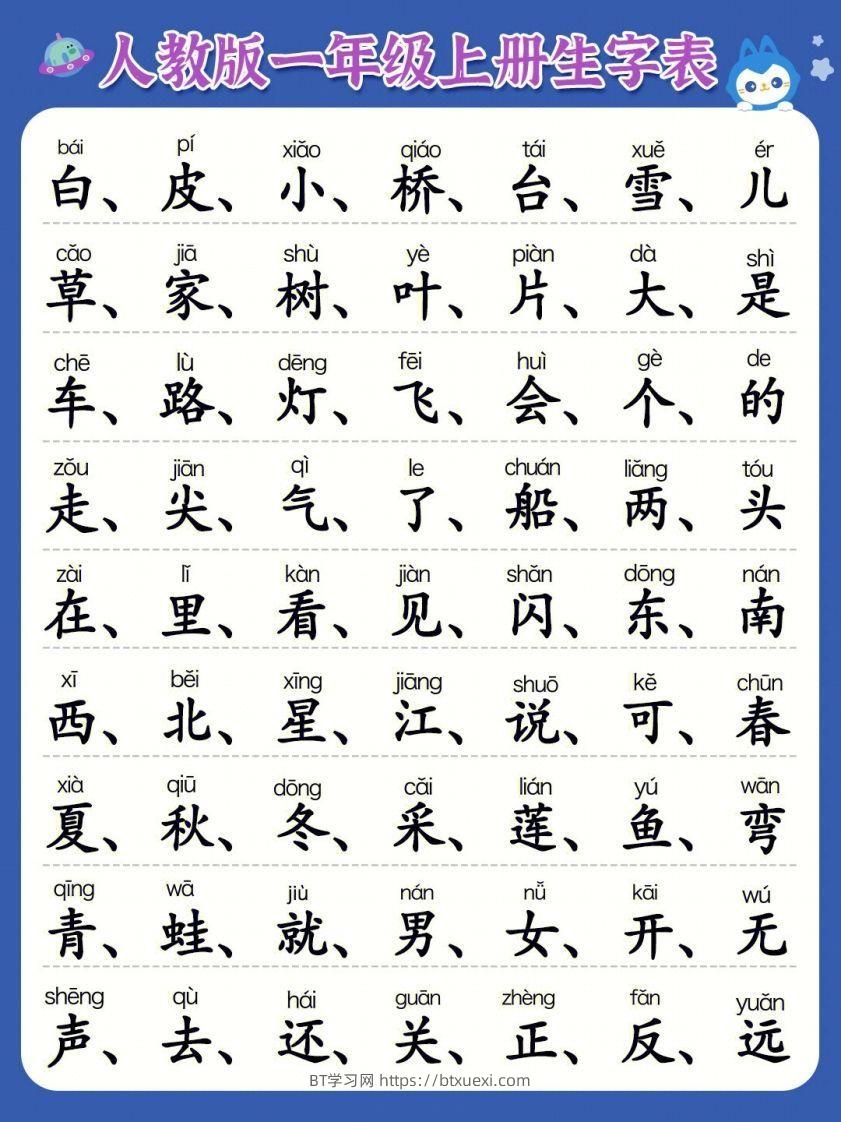 人教版一年级上册生字表
bái pí xiǎo qiáo tái xuě ér
白、皮、小、桥、台、雪、儿
cǎo jiā shù yè piàn dà shì
草、家、树、叶、片、大、是
chē lù dēng fēi huì gè de
车、路、灯、飞、会、个、的
zǒu jiān qì le chuán liǎng tóu
走、尖、气、了、船、两、头
zài lǐ kàn jiàn shǎn dōng nán
在、里、看、见、闪、东、南
xī běi xīng jiāng shuō kě chūn
西、北、星、江、说、可、春
xià qiū dōng cǎi lián yú wān
夏、秋、冬、采、莲、鱼、弯
qīng wā jiù nán nǚ kāi wú
青、蛙、就、男、女、开、无
shēng qù hái guān zhèng fǎn yuǎn
声、去、还、关、正、反、远
BT学习网 https://btxuexi.com